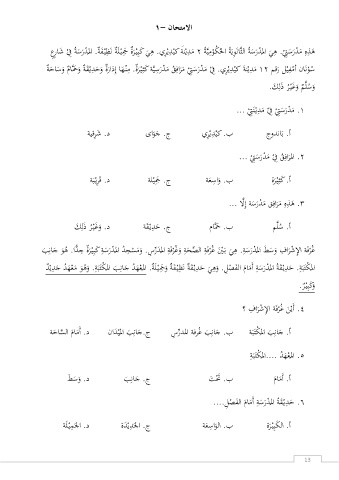 الامتحان -١
هَذِهِ مَدْرَسَتِيْ. هِيَ المَدْرَسَةُ الثَّانَوِيَّةُ الحُكُوْمِيَّةُ ٢ مَدِيْنَة كِيْدِيْرِي. هِيَ كَبِيْرَةٌ جَمِيْلَةٌ نَظِيْفَةٌ. المَدْرَسَةُ فِيْ شَارِعِ
سُوْنَان أَمْفِيْل رَقم ١٢ مَدِيْنَة كِيْدِيْرِي. فِيْ مَدْرَسَتِيْ مَرَافِقُ مَدْرَسِيَّة كَثِيْرَةٌ. مِنْهَا إِدَارَةٌ وَحَدِيْقَةٌ وَحَمَّامٌ وَسَاحَةٌ
وَسُلَّمٌ وَغَيْرُ ذَلِكَ.
١. مَدْرَسَتِيْ فِيْ مَدِيْنَتِيْ ...
أ. بَاندوج ب. كِيْدِيْرِي ج. جَوَاى د. شَرقِية
٢. المَرَافِقُ فِيْ مَدْرَسَتِيْ ...
أ. كَثِيْرَة ب. وَاسِعَة ج. جَمِيْلَة د. قَرِيْبَة
٣. هَذِهِ مَرَافِق مَدْرَسَة إِلَّا ...
أ. سُلَّم ب. حَمَّام ج. حَدِيْقَة د. وَغَيْر ذَلِكَ
غُرْفَةِ الإِشْرَافِ وَسَطَ المَدْرَسَةِ. هِيَ بَيْنَ غُرْفَةِ الصِّحَةِ وَغُرْفَةِ المُدَرِّسِ. وَمَسْجِدُ المَدْرَسَةِ كَبِيْرَةٌ جِدًّا. هُوَ جَانِبَ
المَكْتَبَةِ. حَدِيْقَةُ المَدْرَسَةِ أَمَامَ الفَصْلِ. وَهِيَ حَدِيْقَةٌ نَظِيْفَةٌ وَجَمِيْلَةٌ. المَعْهَدُ جَانِبَ المَكْتَبَةِ. وَهُوَ مَعْهَدٌ جَدِيْدٌ
وَكَبِيْرٌ.
٤. أَيْنَ غُرْفَة الإِشْرَافِ ؟
أ. جَانِبَ المَكْتَبَة ب. جَانِبَ غُرفة المدرِّس ج. جَانِبَ المَيْدَان د. أَمَامَ السَّاحَة
٥. المَعْهَدُ ....المَكْتَبَةِ
أ. أَمَامَ ب. تَحْتَ ج. جَانِبَ د. وَسَطَ
٦. حَدِيْقَةُ المَدْرَسَةِ أَمَامَ الفَصْلِ....
أ. الكَبِيْرَة ب. الوَاسِعَة ج. الجَدِيْدَة د. الجَمِيْلَة
13